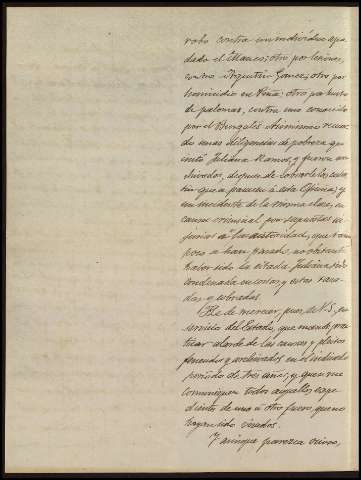 robo contra un individuo apo
dado el Manco; otro por lesiones,
contra Agustin Gomez; otro por
homicidio en Peña; otro por hurto
de palomas, contra uno conocido
por el Bengalés. Asimismo recuer
do unas diligencias de pobreza que
instó Juliana Ramos, y fueron ar
chivadas, despues de
tin que a parecer á esta Oficina; y
un incidente de la misma clase, en
causa criminal por supuestas in
jurias á la autoridad, que tam
poco a han pasado, no obstante
haber sido la citada Juliana
condenada en costas y estas tasa
das y cobradas.
He de merecer, pues, de V.S., en
servicio del Estado, que mande prac
ticar alarde de las causas y pleitos
fenecidos y archivados en el indicado
periodo de tres años; y que se me
comuniquen todos aquellos expe
dientes de uno ú otro fuero, que no
hayan sido visados.
Y aunque parezca ocioso,